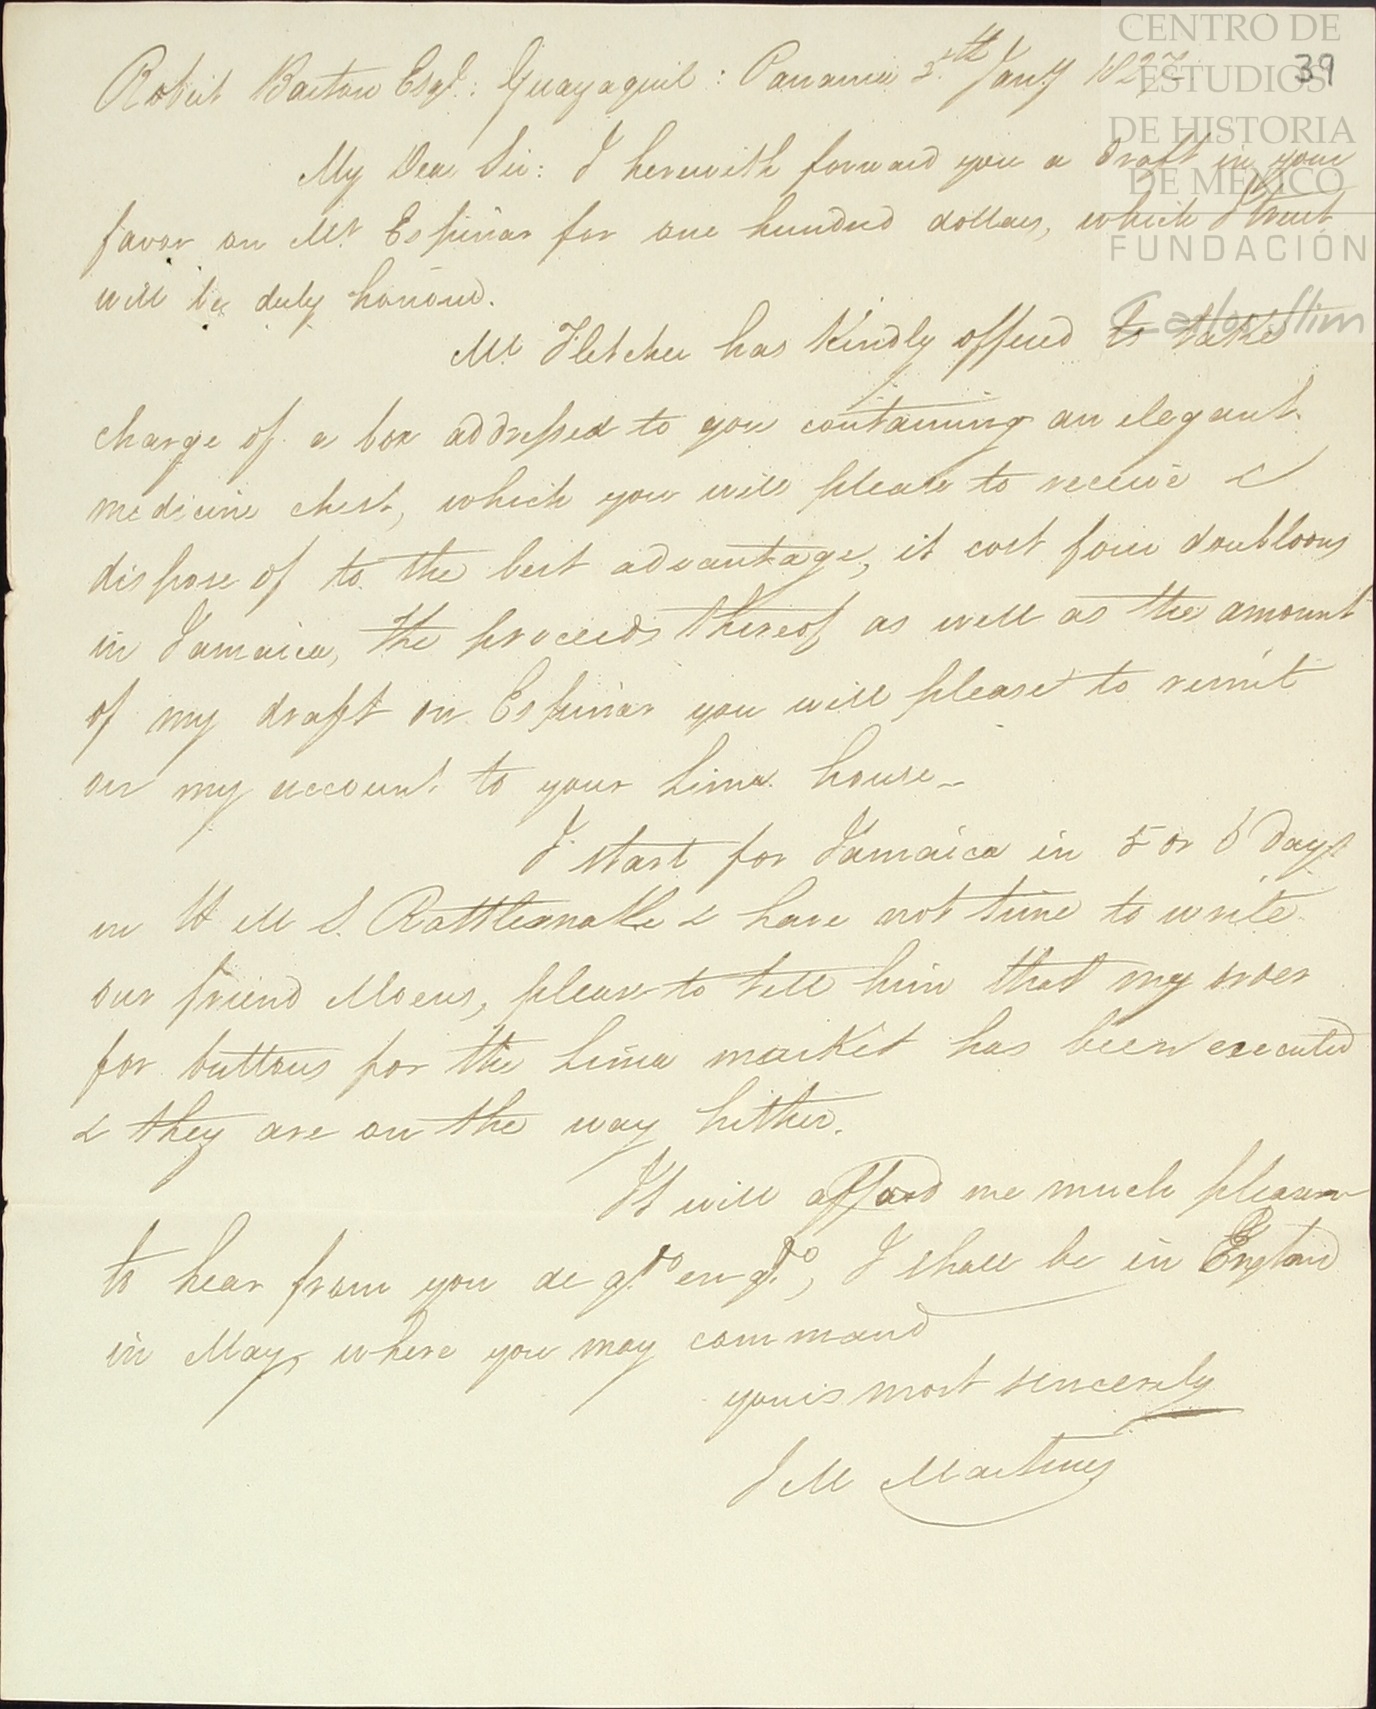 CENTRO DE
ESTUDIOS
DE HISTORIA
DE MÉXICO
FUNDACIÓN
Carlos Slim
39
Robert Barton Esqr. Guayaquil : Panama 5th Jany 1827
My Dear Sir : I herewith forward you a draft in your
favor on Mr Espinar for one hundred dollars, which I trust
will be duly honored.
Mr Fletcher has kindly offered to take
charge of a box addressed to you containing an elegant
medicine chest, which you will please to receive &
dispose of to the best advantage, it cost four doubloons
in Jamaica, the proceeds thereof as well as the amount
of my draft on Espinar you will please to remit
on my account to your Lima house _
I start for Jamaica in 5 or 6 days
in H M S. Rattlesnake & have not time to write
our friend Moens, please to tell him that my order
for buttons for the Lima market has been executed
& they are on the way hither.
It will afford me much pleasure
to hear from you de qdo en qdo, I shall be in England
in May, where you may command
yours most sincerely
J M Martinez